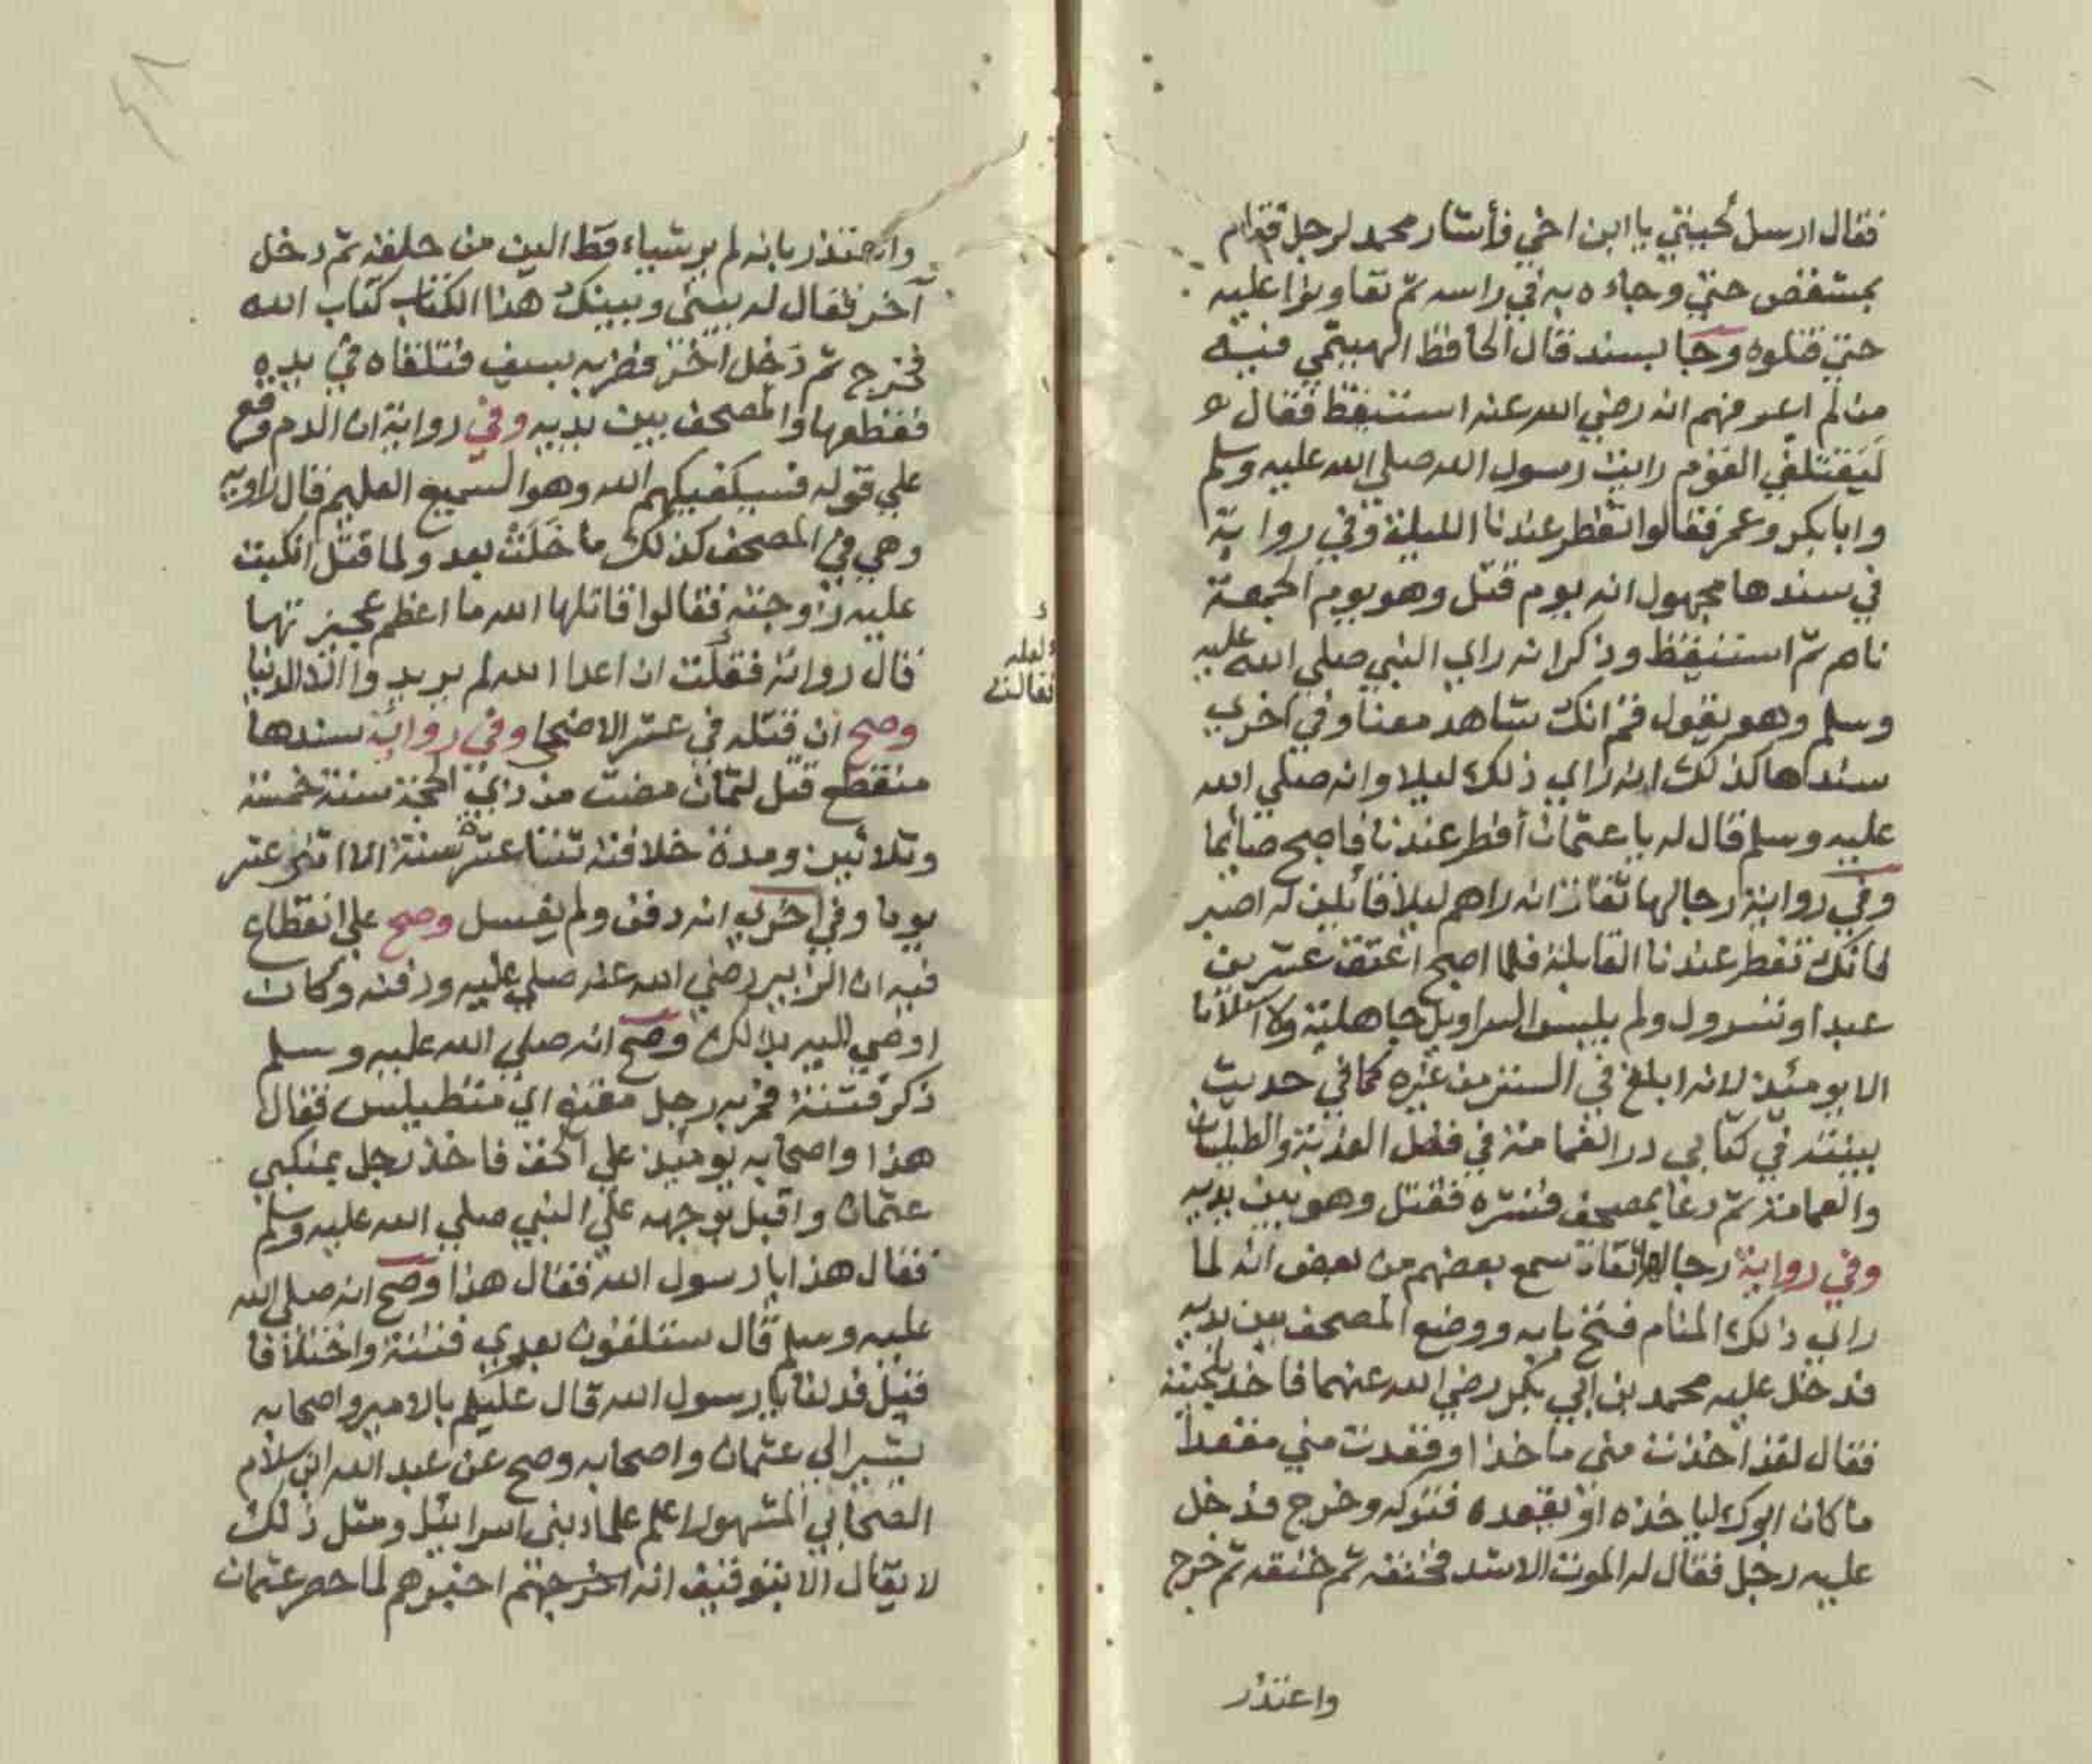 فقال ارسل لحيتي يا ابن اخي فأشار محمد لرجل فقام
بمشقص حتي وجاءه به في راسه ثم تعاونوا عليه
حتي قتلوه وجا بسند قال الحافظ الهيثمي فيه
من لم اعرفهم انه رضي الله عنه استيقظ فقال
ليقتلني القوم رايت رسول الله صلى الله عليه وسلم
وابا بكر وعمر فقالوا تفطر عندنا الليلة وفي رواية
في سندها مجهول انه يوم قتل وهو يوم الجمعة
نام ثم استيقظ وذكر انه راي النبي صلى الله عليه
وسلم وهو يقول قم انك شاهد معنا وفي اخري
سندها كذلك انه راي ذلك ليلا وانه صلي الله
عليه وسلم قال له يا عثمان أفطر عندنا فاصبح صائما
وفي رواية رجالها ثقات انه راهم ليلا قائلين له اصبر
فانك تفطر عندنا القابلة فلما اصبح اعتق عشرين
عبدا وتسرول ولم يلبس السراويل جاهلية ولا اسلاما
الا يومئذ لانه ابلغ في الستر من غيره كما في حديث
بينته في كتابي در الغمامة في فضل العذبة والطيلسان
والعمامة ثم دعا بمصحف فنشره فقتل وهو بين يديه
وفي رواية رجالها ثقات سمع بعضهم من بعض انه لما
راي ذلك المنام فتح بابه ووضع المصحف بين يديه
فدخل عليه محمد بن ابي بكر رضي الله عنهما فاخذ بلحيته
فقال لقد اخذت مني ماخذا وقعدت مني مقعدا
ما كان ابوك لياخذه او يقعده فتركه وخرج فدخل
عليه رجل فقال له الموت الاسود فخنقه ثم خنقه ثم خرج
واعتذر
واعتذر بانه لم ير شياء قط الين من حلقه ثم دخل
آخر فقال له بيني وبينك هذا الكتاب كتاب الله
فخرج ثم دخل اخر فضربه بسيف فتلقاه في يده
فقطعها والمصحف بين يديه وفي رواية ان الدم وقع
علي قوله فسيكفيكهم الله وهو السميع العليم قال راويه
وهي في المصحف كذلك ما حكت بعد ولما قتل انكبت
عليه زوجته فقالوا قاتلها الله ما اعظم عجيزتها
قال رواته فقلت ان اعدا الله لم يريدوا الا الدنيا
لعله
فقالت
وصح ان قتله في عشر الاضحي وفي رواية سندها
منقطع قتل لثمان مضت من ذي الحجة سنة خمسة
وثلاثين ومدة خلافته ثنتا عشرة سنة الا اثني عشر
يوما وفي اخري انه دفن ولم يغسل وصح علي انقطاع
فيه ان الزبير رضي الله عنه صلي عليه ودفنه وكان
اوصي اليه بذلك وصح انه صلي الله عليه وسلم
ذكر فتنة فمر به رجل مقنع اي متطيلس فقال
هذا واصحابه يومئذ علي الحق فاخذ رجل بمنكبي
عثمان واقبل بوجهه علي النبي صلي الله عليه وسلم
فقال هذا يا رسول الله فقال هذا وصح انه صلي الله
عليه وسلم قال ستلقون بعدي فتنة واختلافا
قيل فدلنا يا رسول الله قال عليكم بالامير واصحابه
يشير الي عثمان واصحابه وصح عن عبد الله ابن سلام
الصحابي المشهور اعلم علماء بني اسرائيل ومثل ذلك
لا يقال الا بتوقيف انه اخبرهم لما حصر عثمان